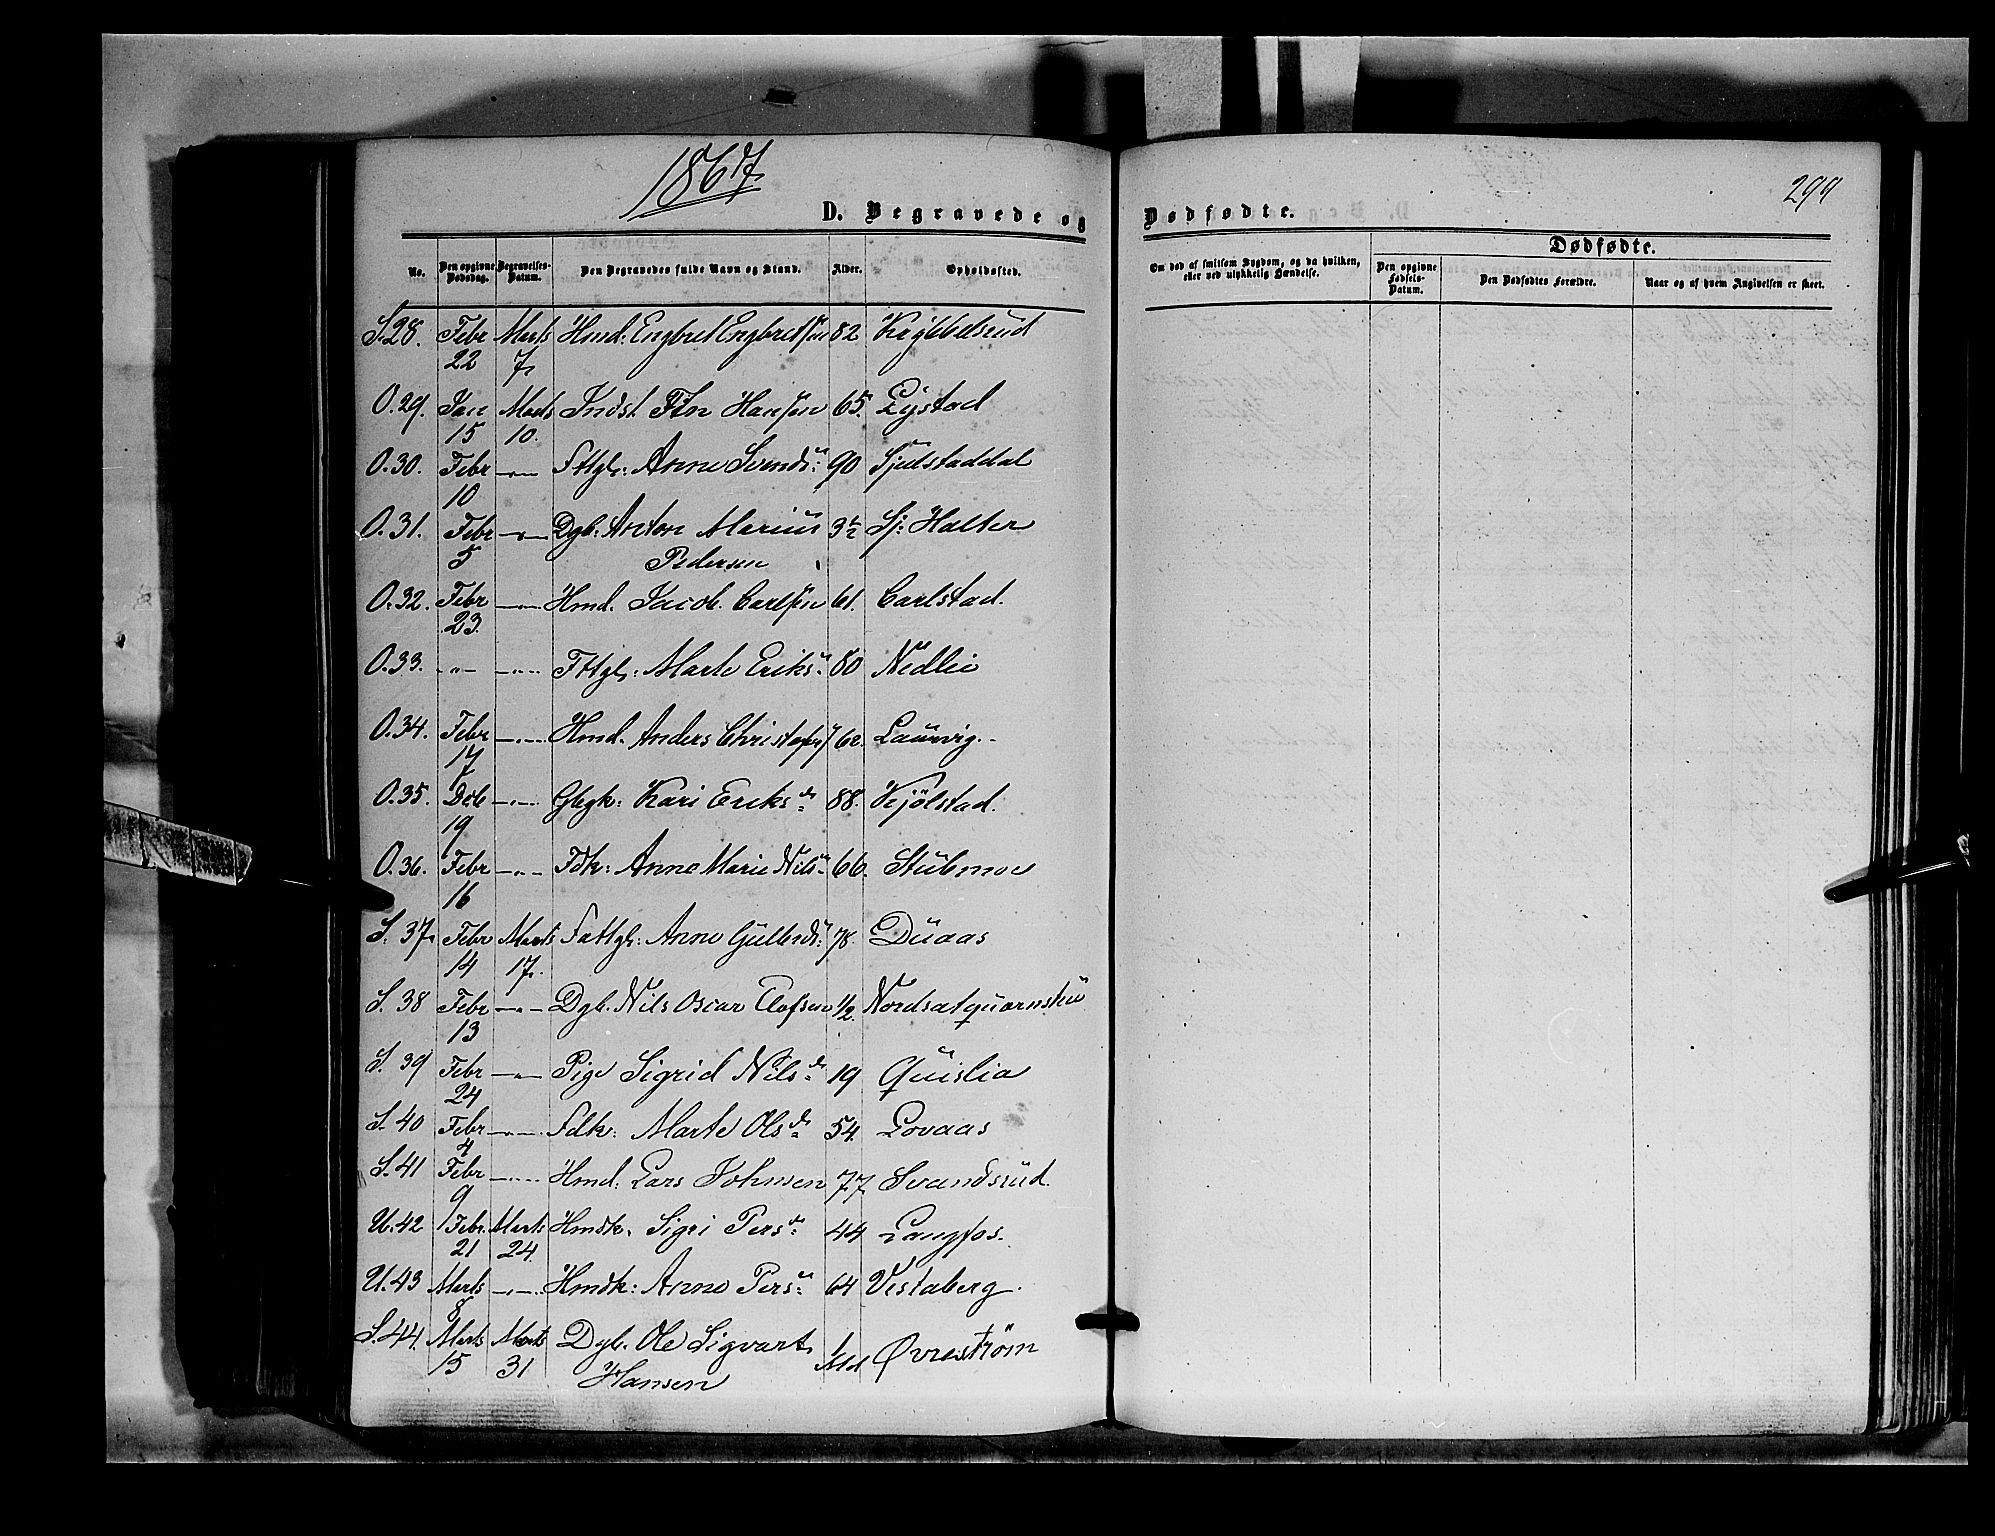 1867
299
D. Begravede og Dødfødte.
Dødfødte.
No. Den opgivne Dødsdag. Begravelses-Datum. Den Begravedes fulde Navn og Stand. Alder. Opholdssted. Om død af smitsom Sygdom, og da hvilken, eller ved ulykkelig Hændelse. Den opgivne Fødsels-Datum. Den Dødfødtes Forældre. Naar og af hvem Angivelsen er skeet.
S. 28. Febr Marts Hmd. Engbret Engbretsen 82
22 7
O. 29. Jan Marts Indst Hansen 65. Lystad
15 10.
O. 30. Febr -"- Fttgl: Anne Svends d: 90 Sjulstaddal
10
O. 31. Febr -"- Dgb: Anton Marius 3½ Sj: Halter
5 Pedersen
O. 32. Febr -"- Hmd. Jacob Carlsen 61. Carlstad.
23.
O. 33. -"- -"- Fttgl: Marte Eriks d: 80 Nedlie
O. 34. Febr -"- Hmd. Anders Christophs 62. Laurvig.
17
O. 35. Dcb -"- Gbgk: Kari Eriks d: 88. Kjølstad.
19
O. 36. Febr -"- Fdk: Anne Marie Nils d: 66. Stubmoe
16
S. 37. Febr Marts Fattgl: Anne Gulbrds d: 78. Duaas
14 17.
S. 38 Febr -"- Dgb. Nils Oscar Olofsen ½
13
S. 39 Febr -"- Pige Sigrid Nils d: 19 Quislia
24
S. 40 Febr -"- Fdk: Marte Ols d: 54. Lovaas
4
S. 41 Febr -"- Hmd. Lars Johnsen 77. Svandsrud.
9
U. 42 Febr. Marts Hmdk. Sigri Pers d: 44 Langfos.
21 24.
U. 43 Marts -"- Hmdk: Anne Pers d: 64 Vestaberg.
8
S. 44. Marts Marts Dgb. Ole Sigvart 1 Øvreström
15 31 Hansen Md